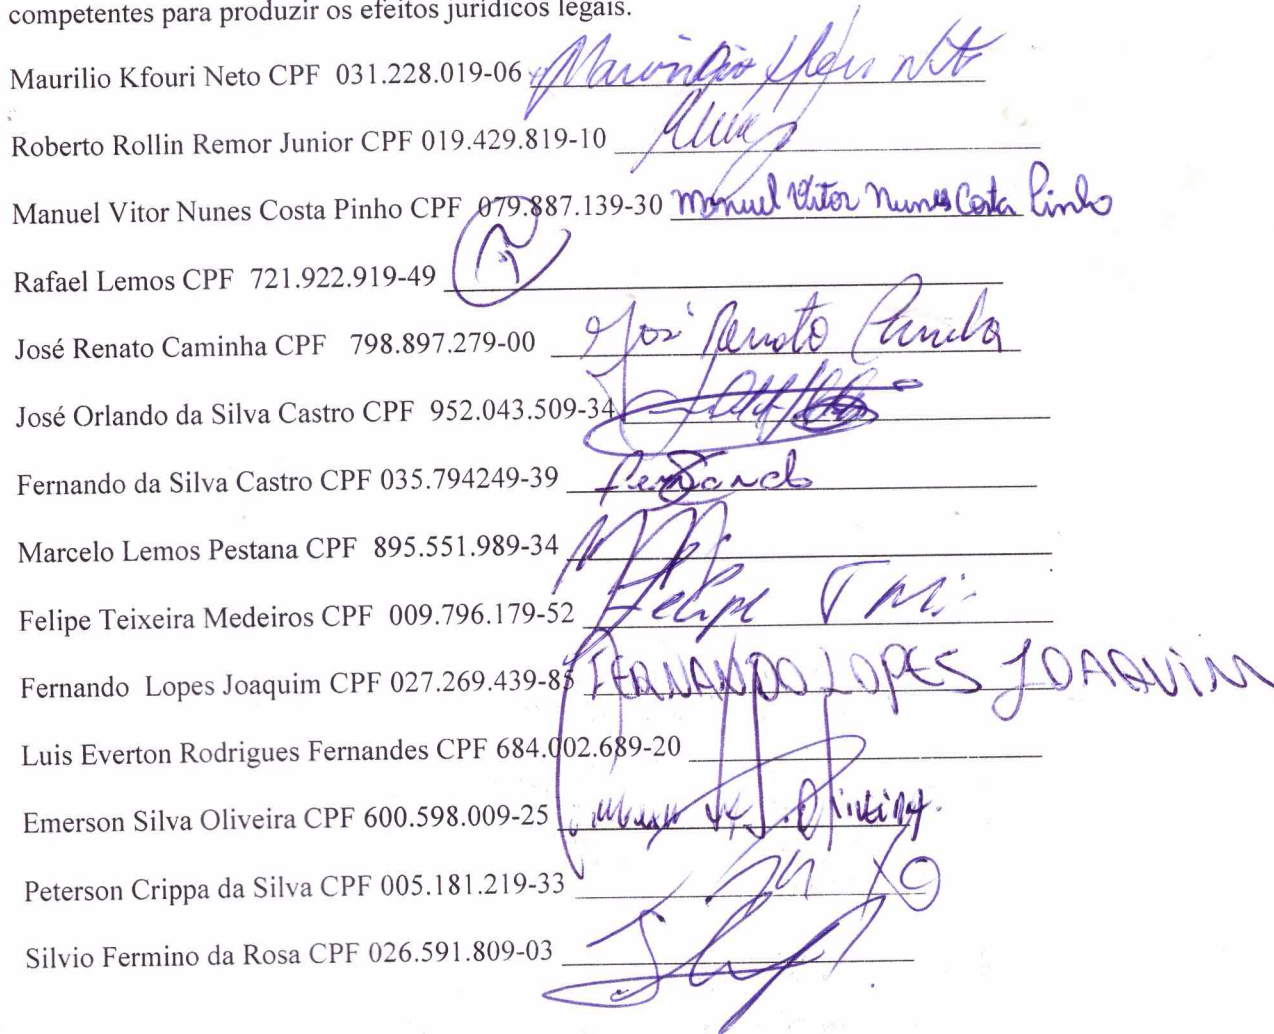 competentes para produzir os efeitos jurídicos legais.
Maurilio Kfouri Neto CPF 031.228.019-06
Roberto Rollin Remor Junior CPF 019.429.819-10
Manuel Vitor Nunes Costa Pinho CPF 079.887.139-30 Manuel Vitor Nunes Costa Pinho
Rafael Lemos CPF 721.922.919-49
José Renato Caminha CPF 798.897.279-00 José Renato Caminha
José Orlando da Silva Castro CPF 952.043.509-34
Fernando da Silva Castro CPF 035.794249-39 Fernando
Marcelo Lemos Pestana CPF 895.551.989-34
Felipe Teixeira Medeiros CPF 009.796.179-52 Felipe T
Fernando Lopes Joaquim CPF 027.269.439-85 FERNANDO LOPES JOAQUIM
Luis Everton Rodrigues Fernandes CPF 684.002.689-20
Emerson Silva Oliveira CPF 600.598.009-25 Oliveira.
Peterson Crippa da Silva CPF 005.181.219-33
Silvio Fermino da Rosa CPF 026.591.809-03